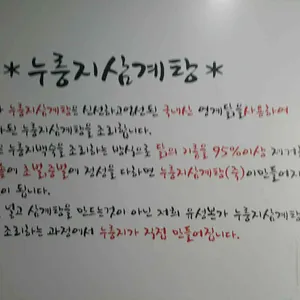 * 누룽지삼계탕 *
누룽지삼계탕은 신선하고엄선된 국내산 영계닭을사용하여
된 누룽지삼계탕을 조리합니다.
누룽지백숙을 조리하는 방식으로 닭의 기름을 95%이상 제거
초벌,중벌에 정성을 다하면 누룽지삼계탕(죽)이만들어지
이 됩니다.
넣고 삼계탕을 만드는것이 아닌 저희 유성본가 누룽지삼계탕
조리하는 과정에서 누룽지가 직접 만들어집니다.